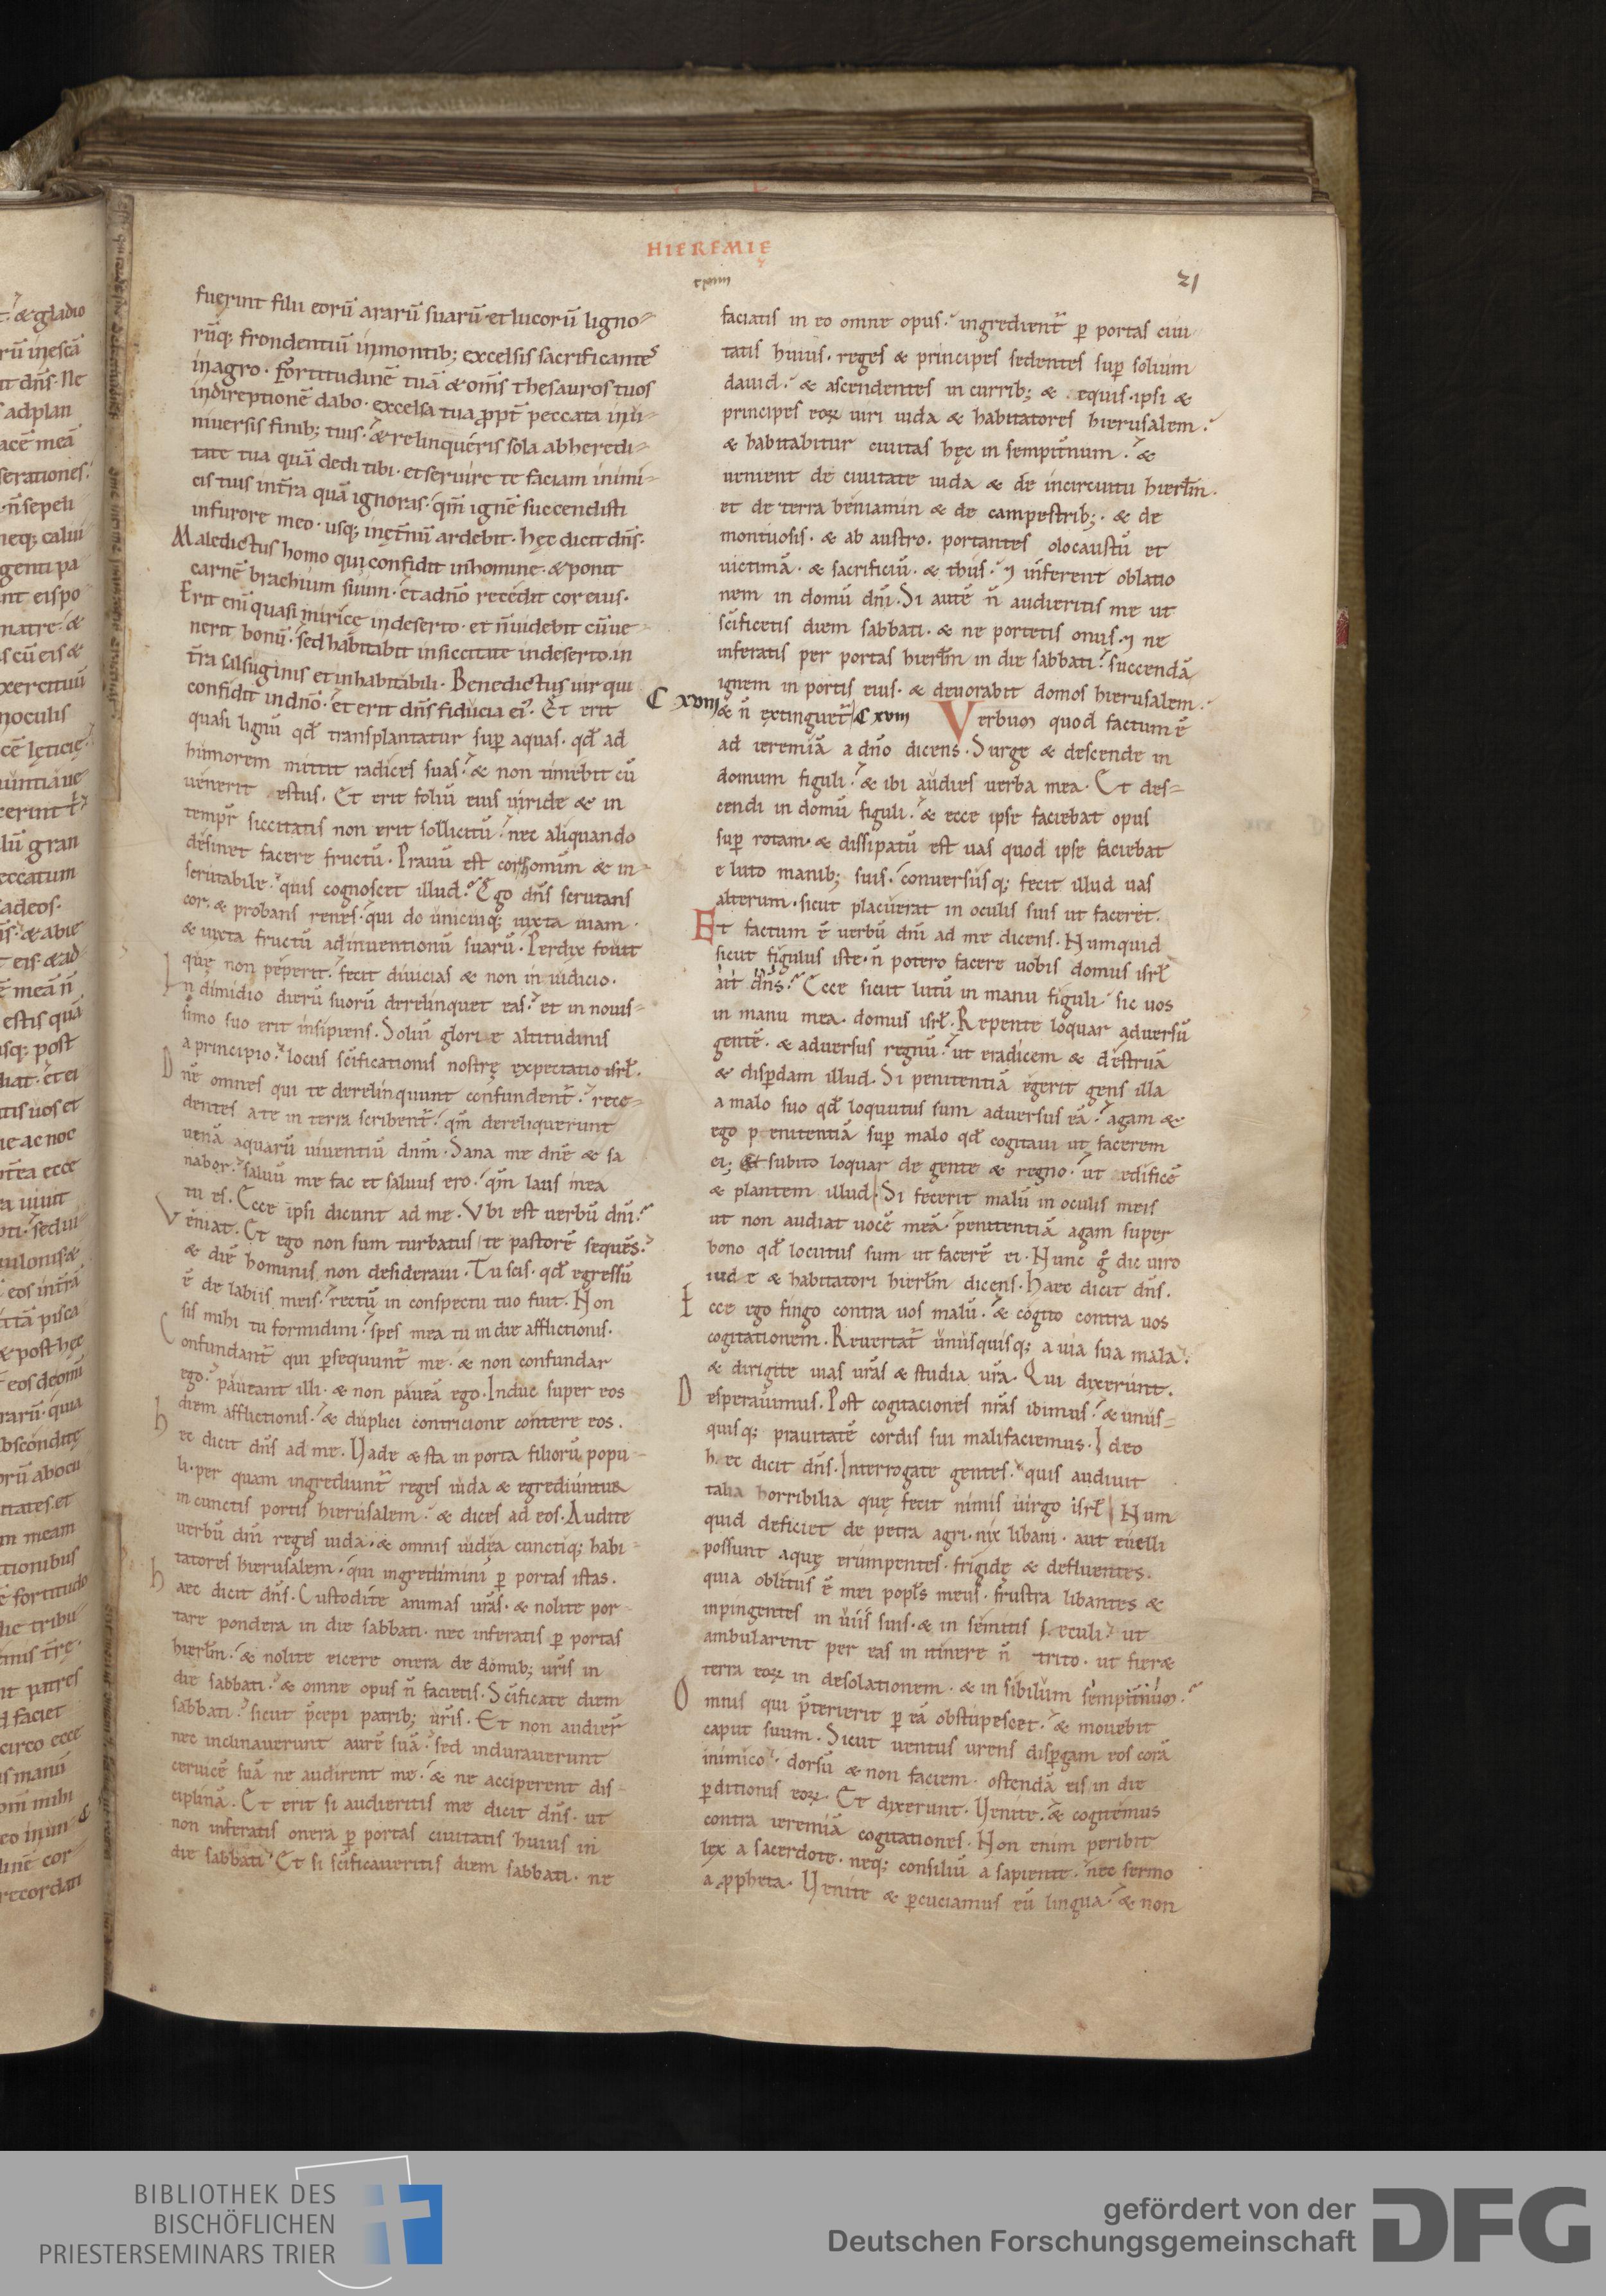 HIEREMIĘ
21
fuerint filii eorū ararū suarū et lucorū ligno-
rūq; frondentiū in montib; excelsis sacrificantes
in agro. Fortitudinē tuā & om̄s thesauros tuos
in direptionē dabo. excelsa tua ꝓpt̄ peccata in u-
niversis finib; tuis. & relinqueris sola ab heredi-
tate tua quā dedi tibi. et servire te faciam inimi-
cis tuis in t̄ra quā ignoras. qm̄ ignē succendisti
in furore meo. usq; in ęt̄nū ardebit. hęc dicit dn̄s.
Maledictus homo qui confidit in homine. & ponit
carnē brachium suum. et a dn̄o recedit cor eius.
Erit eni quasi mirice in deserto. et n̄ videbit cū ve-
nerit bonū. sed habitabit in siccitate in deserto. in
t̄ra salsuginis et inhabitabili. Benedictus vir qui
confidit in dn̄o. et erit dn̄s fiducia ei'. Et erit
quasi lignū qd̄ transplantatur sup aquas. qd̄ ad
humorem mittit radices suas. & non timebit cū
venerit estus. Et erit foliū eius viride & in
tempr̄ siccitatis non erit sollicitū. nec aliquando
desinet facere fructū. Pravū est cor homīnū & in-
scrutabile. quis cognoscet illud. Ego dn̄s scrutans
cor. & probans renes. qui do unicuiq; iuxta viam.
& iuxta fructū adinventionū suarū. Perdix fovit
quę non peperit. fecit divicias & non in iudicio.
In dimidio dierū suorū derelinquet eas. et in novis-
simo suo erit insipiens. Soliū glorie altitudinis
a principio. locus sc̄ificationis nostrę expectatio isrł.
Dn̄e omnes qui te derelinquunt confundent̄. rece-
dentes a te in terra scribent̄. qm̄ dereliquerunt
venā aquarū viventiū dn̄m. Sana me dn̄e & sa
nabor. salvū me fac et salvus ero. qm̄ laus mea
tu es. Ecce ipsi dicunt ad me. Ubi est verbū dn̄i.
Veniat. Et ego non sum turbatus te pastorē sequēs.
& diē hominis non desideravi. Tu scis. qd̄ egressū
ē de labiis meis. rectū in conspectu tuo fuit. Non
sis mihi tu formidini. spes mea tu in die afflictionis.
Confundant̄ qui p̱sequunt̄ me. & non confundar
ego. paveant illi. & non paveā ego. Induc super eos
diem afflictionis. & duplici contricione contere eos.
hec dicit dn̄s ad me. Vade & sta in porta filiorū popu-
li. per quam ingrediunt̄ reges iuda & egrediuntur
in cunctis portis hierusalem. & dices ad eos. Audite
verbū dn̄i reges iuda. & omnis iudea cunctiq; habi-
tatores hierusalem. qui ingredimini p̱ portas istas.
haec dicit dn̄s. Custodite animas vr̄as. & nolite por-
tare pondera in die sabbati. nec inferatis p̱ portas
hierłm. & nolite eicere onera de domib; vr̄is in
die sabbati. & omne opus n̄ facietis. Sc̄ificate diem
sabbati. sicut p̄cepi patrib; vr̄is. Et non audier̄
nec inclinaverunt aurē suā. sed induraverunt
cervicē suā ne audirent me. & ne acciperent dis-
ciplinā. Et erit si audieritis me dicit dn̄s. ut
non inferatis onera p̱ portas civitatis huius in
die sabbati. Et si sc̄ificaveritis diem sabbati. ne
faciatis in eo omne opus. ingredient̄ p̱ portas civi
tatis huius. reges & principes sedentes sup solium
david. & ascendentes in currib; & equis. ipsi &
principes eoꝝ viri iuda & habitatores hierusalem.
& habitabitur civitas hęc in sempit̄num. &
venient de civitate iuda & de incircuitu hierłm.
et de terra beniamin & de campestrib;. & de
montuosis. & ab austro. portantes olocaustū et
victimā. & sacrificiū. & thus. ⁊ inferent oblatio
nem in domū dn̄i. Si autē n̄ audieritis me ut
sc̄ificetis diem sabbati. & ne portetis onus. ⁊ ne
inferatis per portas hierłm in die sabbati. succendā
ignem in portis eius. & devorabit domos hierusalem.
C xviii & n̄ extinguet̄ C xviii Verbum quod factum ē
ad ieremiā a dn̄o dicens. Surge & descende in
domum figuli. & ibi audies verba mea. Et des-
cendi in domū figuli. & ecce ipse faciebat opus
sup rotam. & dissipatū est vas quod ipse faciebat
e luto manib; suis. conversusq; fecit illud vas
alterum. sicut placuerat in oculis suis ut faceret.
Et factum ē verbū dn̄i ad me dicens. Numquid
sicut figulus iste. n̄ potero facere vobis domus isrł
ait dn̄s. Ecce sicut lutū in manu figuli. sic vos
in manu mea. domus isrł. Repente loquar adversū
gentē. & adversus regnū. ut eradicem & destruā
& disp̱dam illud. Si penitentiā egerit gens illa
a malo suo qd̄ loquutus sum adversus eā. agam &
ego p enitentiā sup malo qd̄ cogitavi ut facerem
ei; Et subito loquar de gente & regno. ut edificē
& plantem illud. Si fecerit malū in oculis meis
ut non audiat vocē meā. penitentiā agam super
bono qd̄ locutus sum ut facerē ei. Nunc g̊ dic viro
iud e & habitatori hierłm dicens. Haec dicit dn̄s.
Ecce ego fingo contra vos malū. & cogito contra vos
cogitationem. Revertat̄ unusquisq; a via sua mala.
& dirigite vias vr̄as & studia vr̄a. Qui dixerunt.
Desperavimus. Post cogitaciones nr̄as ibimus. & unus-
quisq; pravitatē cordis sui mali faciemus. Ideo
h ec dicit dn̄s. Interrogate gentes. quis audivit
talia horribilia quę fecit nimis virgo isrł Num
quid deficiet de petra agri. nix libani. aut evelli
possunt aquę erumpentes. frigidę & defluentes.
quia oblitus ē mei popłs meus. frustra libantes &
inpingentes in viis suis. & in semitis seculi. ut
ambularent per eas in itinere n̄ trito. ut fieret
terra eoꝝ in desolationem. & in sibilum sempit̄num.
Omnis qui p̄terierit p̱ eā obstupescet. & movebit
caput suum. Sicut ventus urens disp̱gam eos corā
inimico. dorsū & non faciem. ostendā eis in die
p̱ditionis eoꝝ. Et dixerunt. Venite. & cogitemus
contra ieremiā cogitationes. Non enim peribit
lex a sacerdote. neq; consiliū a sapiente. nec sermo
a ꝓpheta. Venite & p̱cuciamus eū lingua. & non
BIBLIOTHEK DES
BISCHÖFLICHEN
PRIESTERSEMINARS TRIER
gefördert von der
Deutschen Forschungsgemeinschaft
DFG